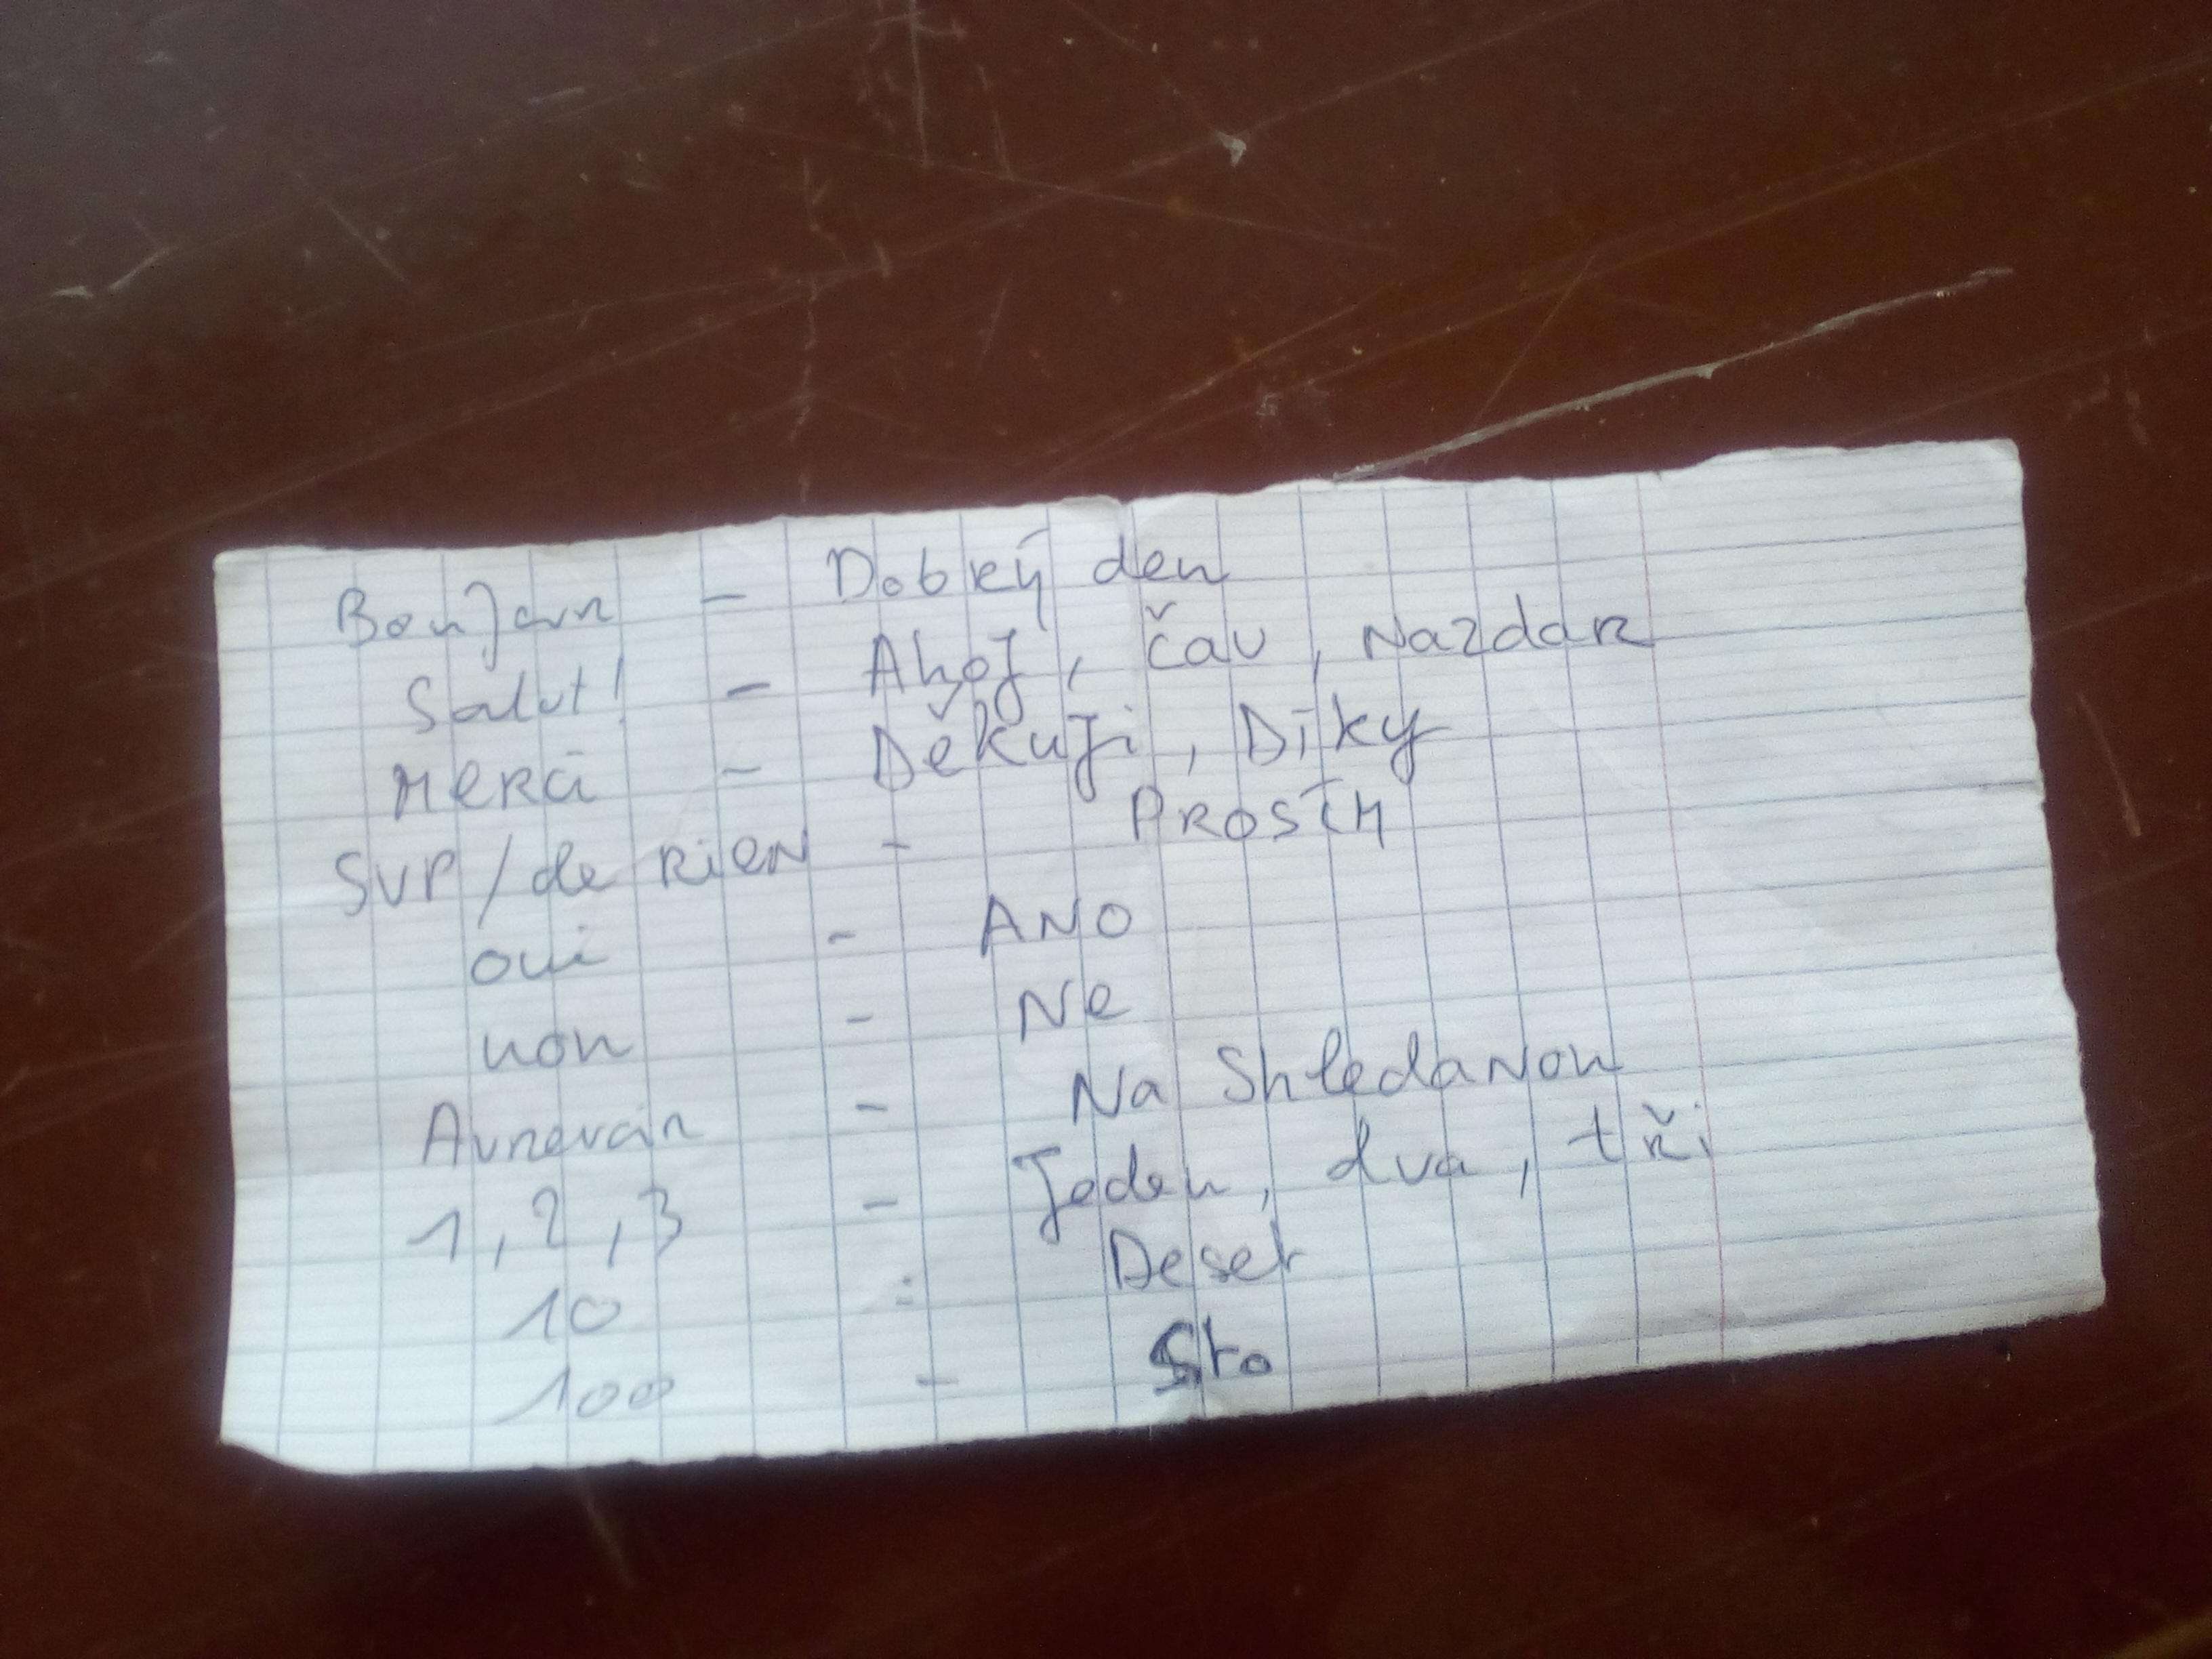 Bonjour - Dobrý den
Salut! - Ahoj, čau, Nazdar
Merci - Děkuji, Díky
SVP / de Rien - Prosím
oui - ANO
non - Ne
Aurevoir - Na Shledanou
1, 2, 3 - Jeden, dva, tři
10 : Deset
100 - Sto